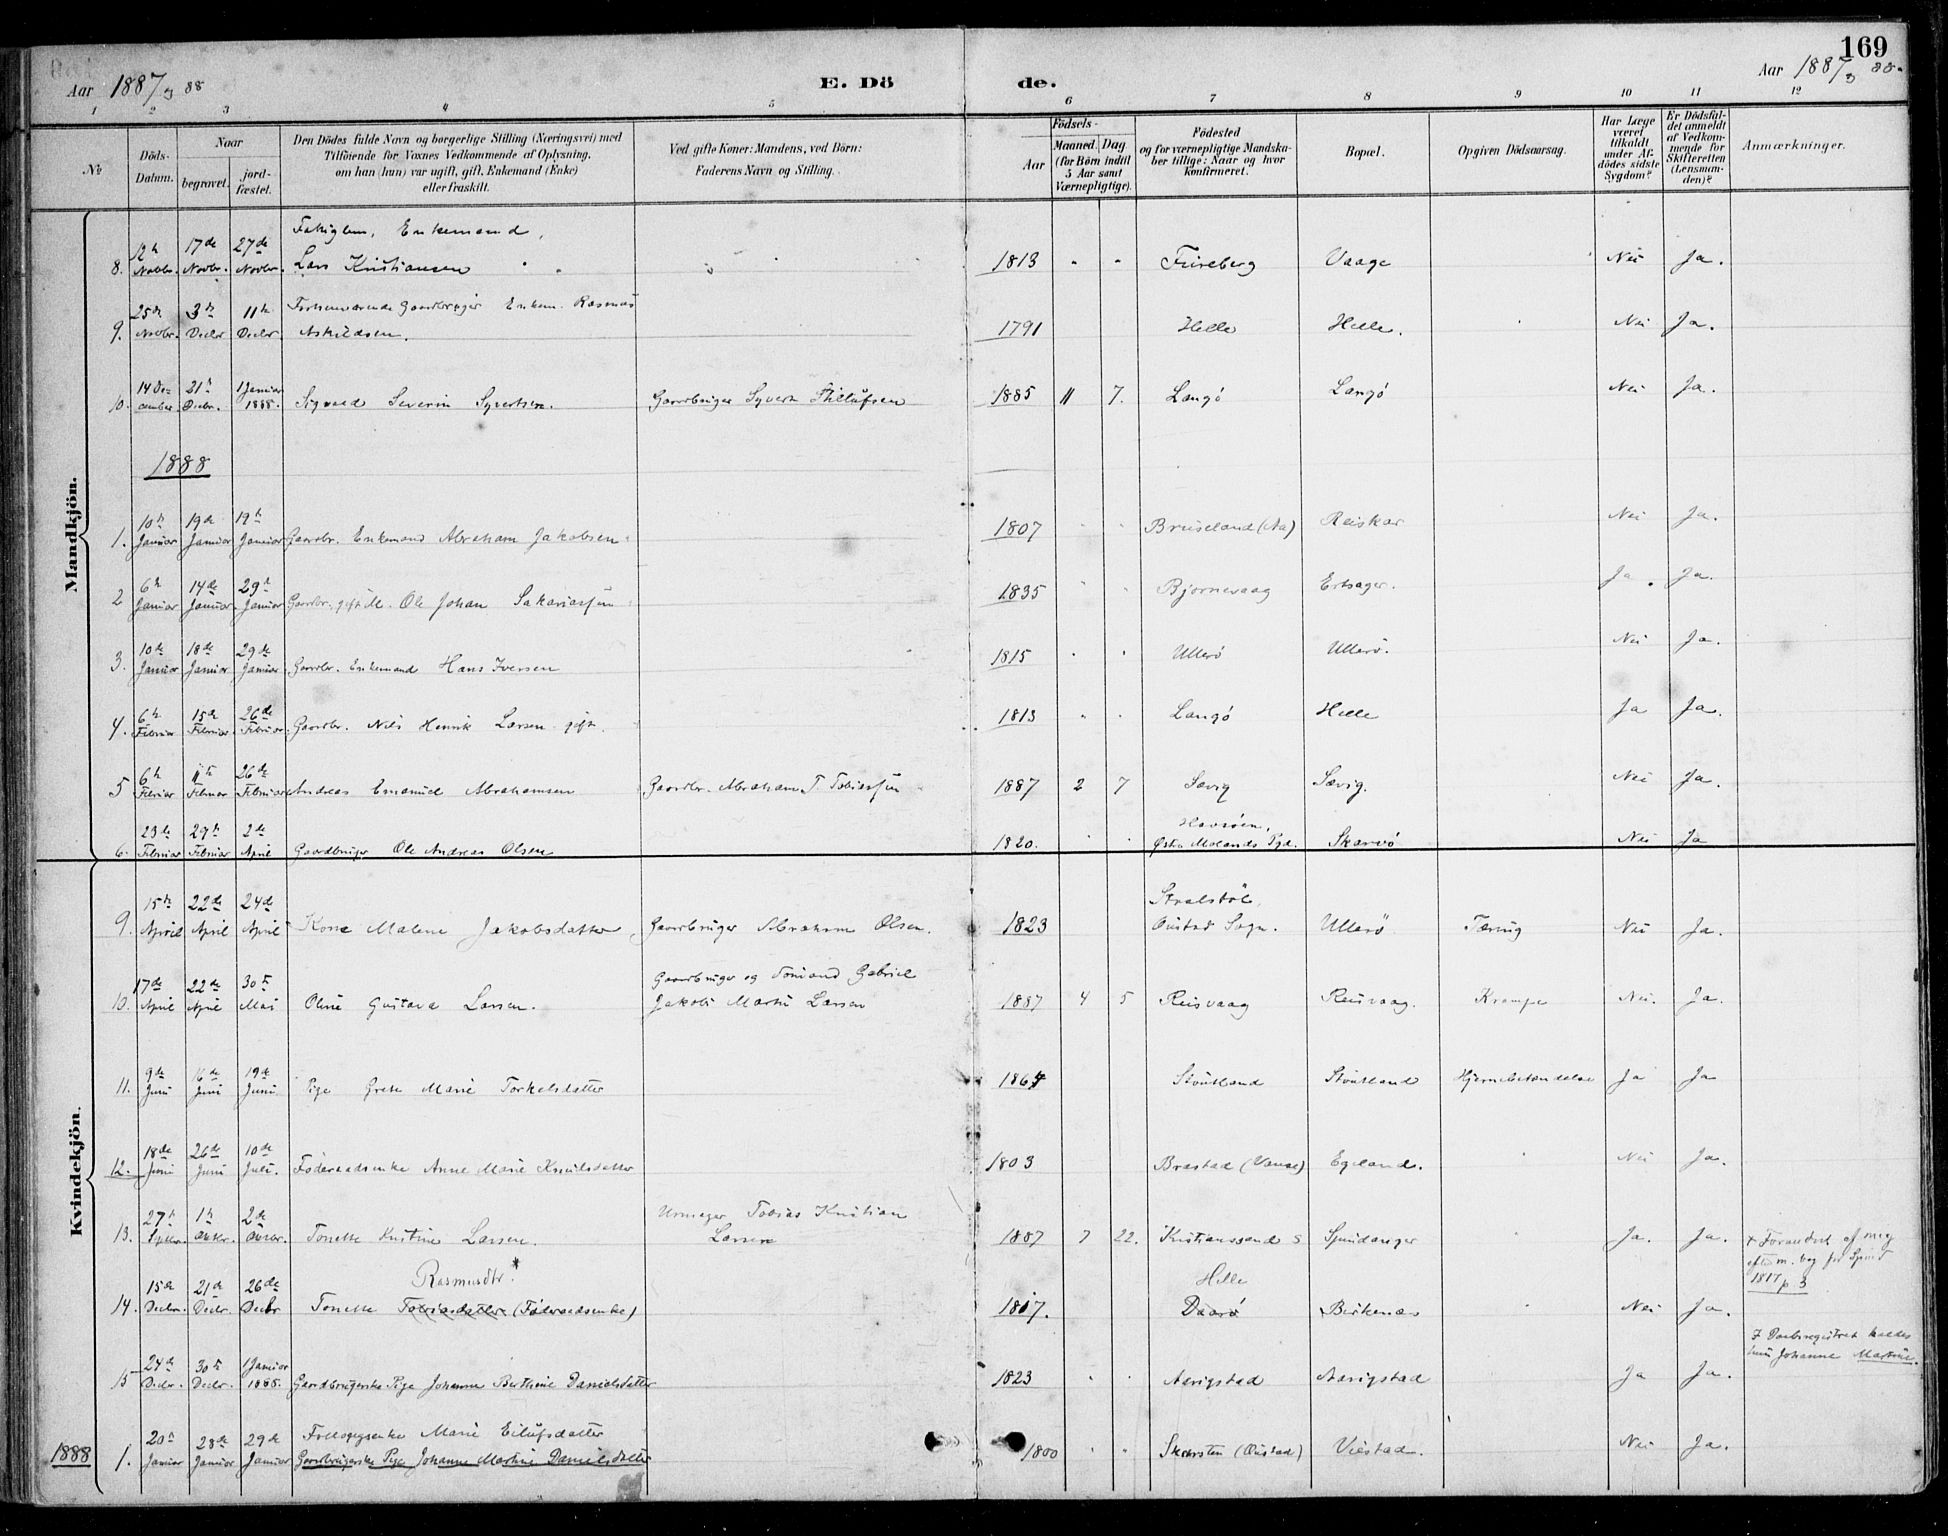 169
Aar 1887 og 88
E. Dö de.
Aar 1887 og 88.
1 2 3 4 5 6 7 8 9 10 11 12
№
Döds-
Datum.
Naar
begravet.
jord-
fæstet.
Den Dödes fulde Navn og borgerlige Stilling (Næringsvei) med
Tilföiende for Voxnes Vedkommende af Oplysning,
om han (hun) var ugift, gift, Enkemand (Enke)
eller fraskilt.
Ved gifte Koner: Mandens, ved Börn:
Faderens Navn og Stilling.
Födsels-
Aar
Maaned. Dag
(for Börn indtil
5 Aar samt
Værnepligtige).
Födested
og for værnepligtige Mandska-
ber tillige: Naar og hvor
konfirmeret.
Bopæl.
Opgiven Dödsaarsag.
Har Læge
været
tilkaldt
under Af-
dödes sidste
Sygdom?
Er Dödsfal-
det anmeldt
af Vedkom-
mende for
Skifteretten
(Lensman-
den)?
Anmærkninger.
Mandkjön.
Fattiglem, Enkemand,
8. 12te Novbr. 17de Novbr. 27de Novbr. Lars Kristiansen 1813 Fureberg Vaage Nei Ja.
9. 25de Novbr. 3de Decbr 11te Decbr. Forhenværende Gaardbruger Enkem. Rasmus
Askildsen. 1791 Helle Helle. Nei Ja.
10. 14 December 21de Decbr. 1 Januar 1888. Sigvald Severin Syvertsen. Gaardbruger Syvert Stillufsen 1885 11 7. Langö Langö Nei Ja.
1888
1. 10de Januar 19de Januar 19de Januar Gaardbr. Enkemand Abraham Jakobsen 1807 Bruseland (Aa) Reiskar Nei Ja.
2 6te Januar 14de Januar 29de Januar Gaardbr. gift M. Ole Johan Sakariassen 1835 Bjornevaag Ertsager. Ja. Ja.
3. 10de Januar 18de Januar 29de Januar Gaardbr. Enkemand Hans Iversen 1815 Ullerö Ullerö. Nei Ja.
4. 6te Februar 15de Februar 26de Februar Gaardbr. Nils Henrik Larsen gift. 1813 Langö Helle Ja Ja.
5 6te Februar 11te Februar 26de Februar Andreas Emanuel Abrahamsen Gaardbr. Abraham T. Tobiassen 1887 2 7 Sævig Sævig. Nei Ja.
6. 23de Februar 29de Februar 2de April Gaardbruger Ole Andreas Olsen 1820. Havsöen,
Østre Molands Pgd. Skarvö Nei Ja
Kvindekjön.
9. 15de April 22de April 24de April Kone Malene Jakobsdatter, Gaardbruger Abraham Olsen. 1823 Stralstöl,
Oustad Sogn. Ullerö Tæring Nei Ja.
10. 17de April 22de April 30te Mai Oline Gustava Larsen. Gaardbruger og Sömand Gabriel
Jakob Martin Larsen 1887 4 5 Reisvaag Reisvaag. Krampe Nei. Ja.
11. 9de Juni 16de Juni 19de Juni Pige Grete Marie Torkelsdatter 1864 Stoutland Stoutland Hjernebetændelse Ja Ja
12. 18de Juni 26de Juni 10de Juli. Föderaadsenke Anne Marie Knutsdatter 1803 Brastad (Vanse) Egeland. Nei Ja.
13. 27de Septbr. 1te Oktbr. 2de Oktbr. Tonette Kristine Larsen. Urmager Tobias Kristian
Larsen 1887 7 22. Kristianssand S Spindanger Ja. Ja.
x Forandret af mig
efter m. bog for Spind
1817 p. 3
Rasmusdtr.* Helle
14. 15de Decbr. 21de Decbr. 26de Decbr Tonette Tobiasdatter (Föderaadsenke) 1817. Daarö Birkenæs Nei Ja.
I Daabsregistret kaldes
hun Johanne Martine.
15 24de Decbr. 30te Decbr. 1 Januar 1888. Gaardbrugerske Pige Johanne Berthine Danielsdatter 1823 Aarigstad Aarigstad Ja Ja.
1888 1. 20de Januar 28de Januar 29de Januar Follogsenke Marie Eilufsdatter 1800 Skarsten (Oustad) Viestad. Nei Ja.
Gaardbrugerske Pige Johanne Martine Danielsdatter